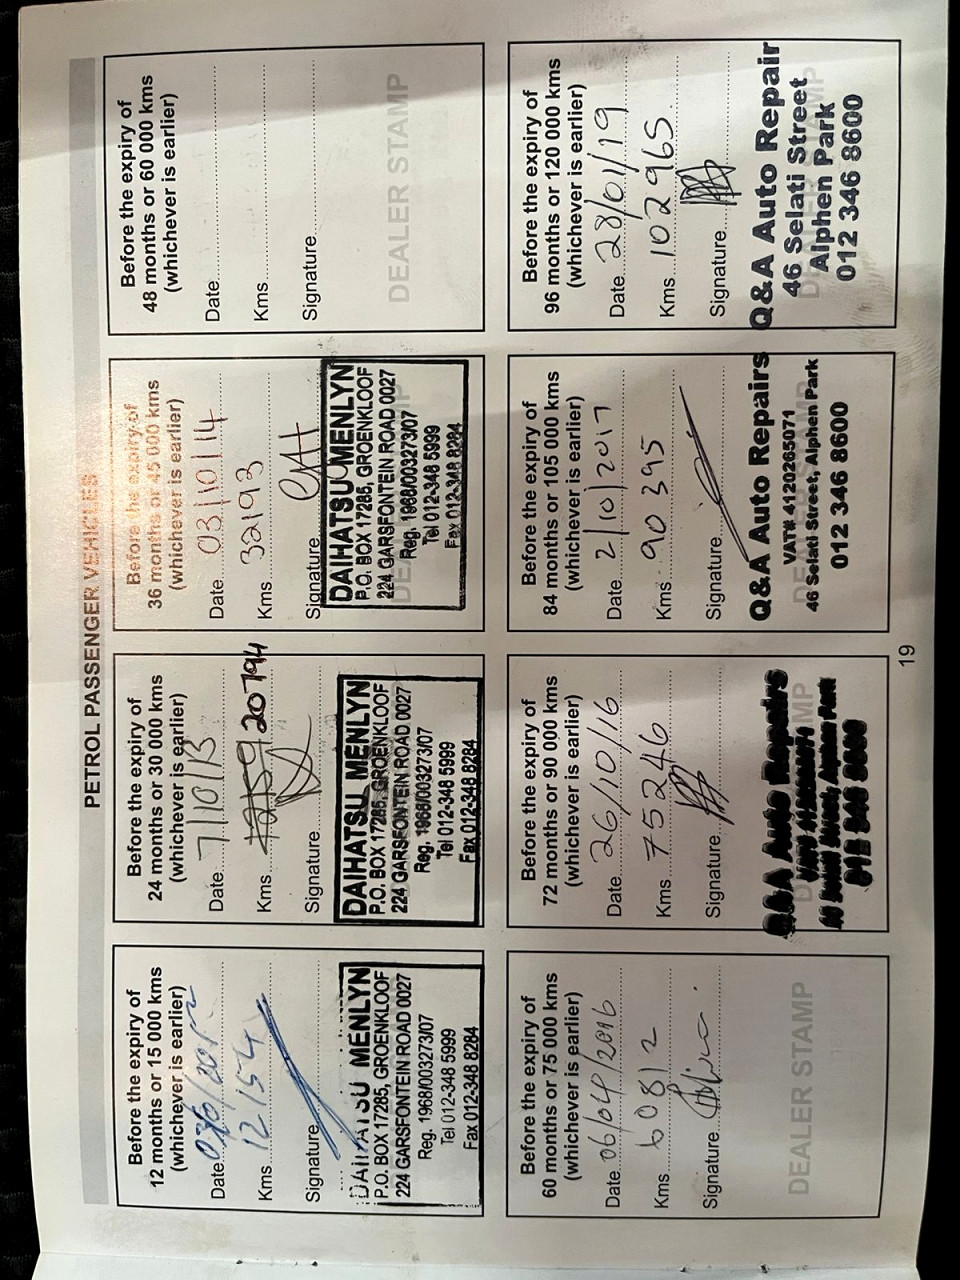 PETROL PASSENGER VEHICLES
Before the expiry of
12 months or 15 000 kms
(whichever is earlier)
Date
Kms 12154
Signature
DAIHATSU MENLYN
P.O. BOX 17285, GROENKLOOF
224 GARSFONTEIN ROAD 0027
Reg. 1968/003273/07
Tel 012-348 5999
Fax 012-348 8284
Before the expiry of
24 months or 30 000 kms
(whichever is earlier)
Date 7/10/13
Kms 20794
Signature
DAIHATSU MENLYN
P.O. BOX 17285, GROENKLOOF
224 GARSFONTEIN ROAD 0027
Reg. 1968/003273/07
Tel 012-348 5999
Fax 012-348 8284
Before the expiry of
36 months or 45 000 kms
(whichever is earlier)
Date 03/10/14
Kms 32193
Signature
DAIHATSU MENLYN
P.O. BOX 17285, GROENKLOOF
224 GARSFONTEIN ROAD 0027
Reg. 1968/003273/07
Tel 012-348 5999
Fax 012-348 8284
Before the expiry of
48 months or 60 000 kms
(whichever is earlier)
Date
Kms
Signature
DEALER STAMP
Before the expiry of
60 months or 75 000 kms
(whichever is earlier)
Date 06/04/2016
Kms 60812
Signature
DEALER STAMP
Before the expiry of
72 months or 90 000 kms
(whichever is earlier)
Date 26/10/16
Kms 75246
Signature
Q&A Auto Repairs
012 346 8600
Before the expiry of
84 months or 105 000 kms
(whichever is earlier)
Date 2/10/2017
Kms 90395
Signature
Q&A Auto Repairs
VAT# 4120265071
46 Selati Street, Alphen Park
012 346 8600
Before the expiry of
96 months or 120 000 kms
(whichever is earlier)
Date 28/01/19
Kms 102965
Signature
Q&A Auto Repair
46 Selati Street
Alphen Park
012 346 8600
19